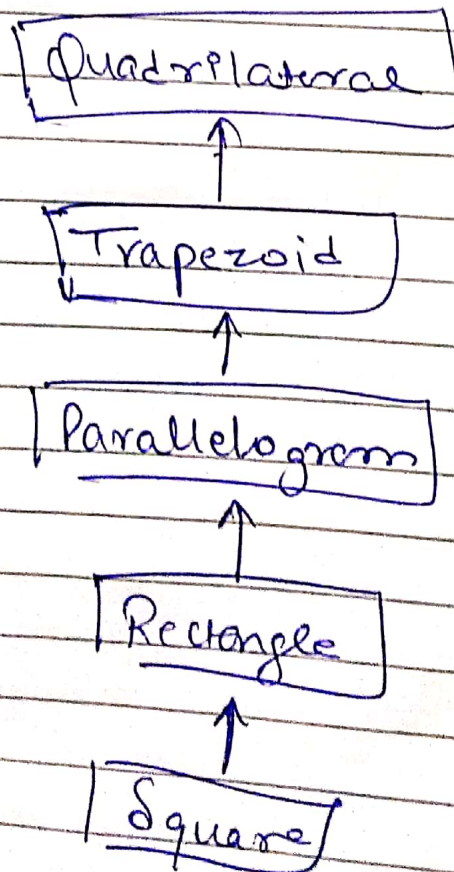 Quadrilateral
Trapezoid
Parallelogram
Rectangle
Square